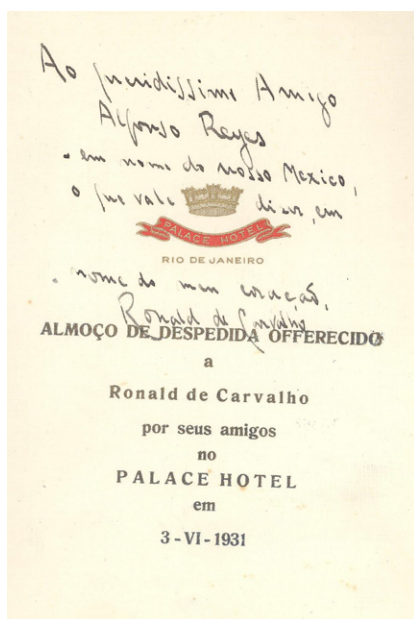 Ao queridissimo Amigo
Alfonso Reyes
em nome do nosso Mexico,
o que vale dizer, em
PALACE HOTEL
RIO DE JANEIRO
nome do meu coração,
Ronald de Carvalho
ALMOÇO DE DESPEDIDA OFFERECIDO
a
Ronald de Carvalho
por seus amigos
no
PALACE HOTEL
em
3-VI-1931